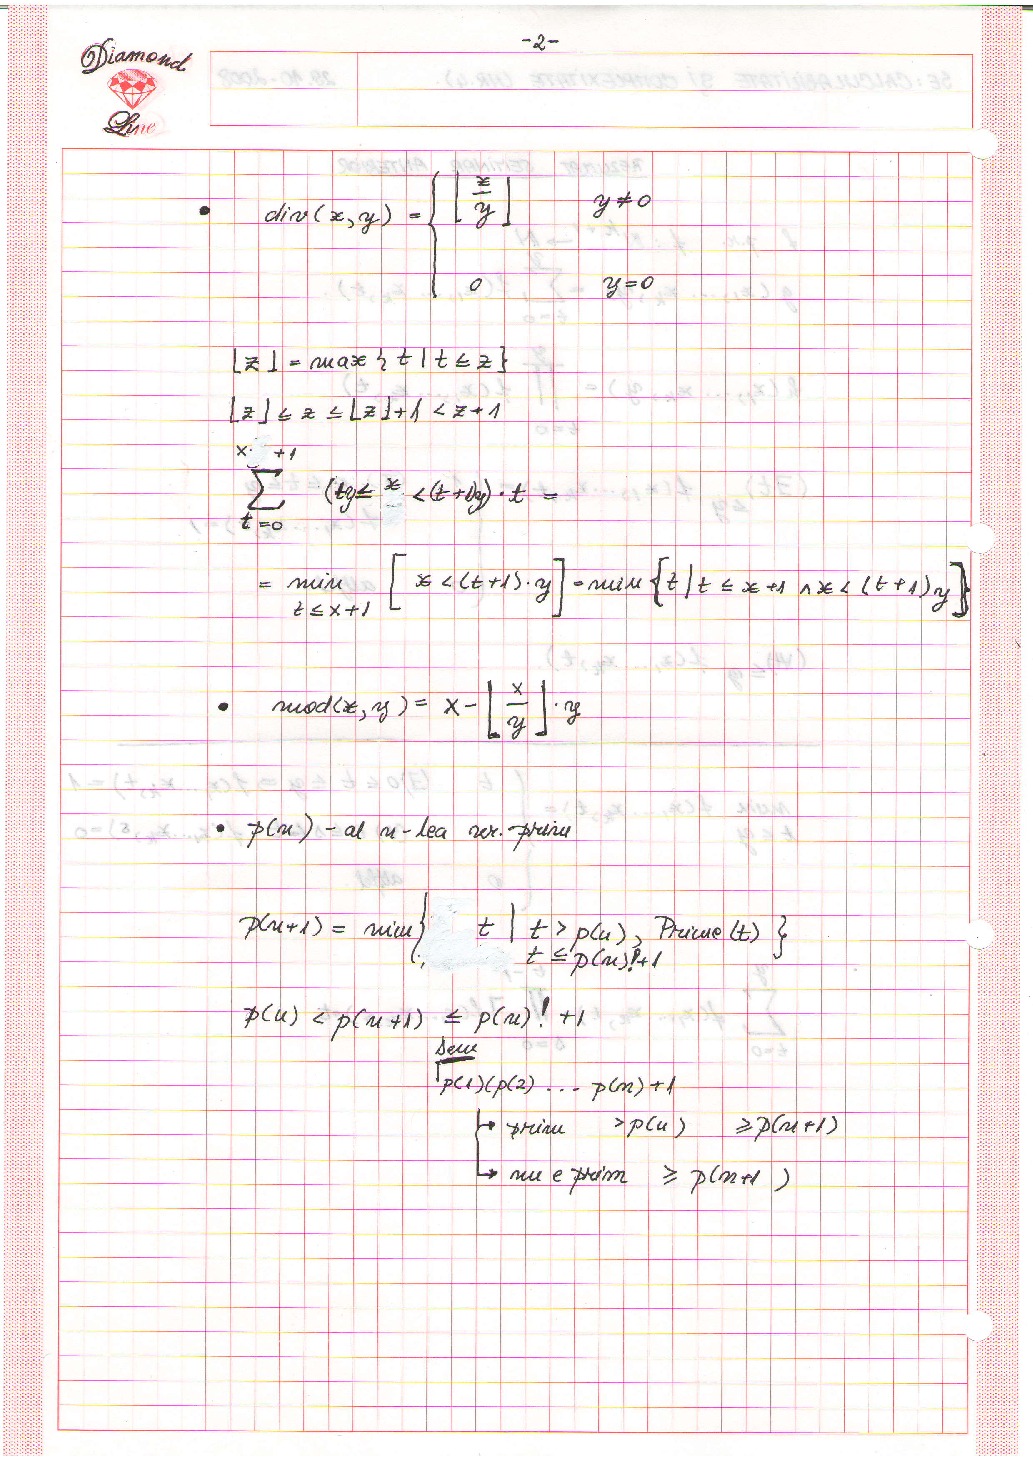 -2-
Diamond
Line
• div(x,y) = { ⌊x/y⌋ y≠0
0 y=0
⌊z⌋ = max{t | t ≤ z}
⌊z⌋ ≤ z ≤ ⌊z⌋+1 < z+1
x+1
∑ (ty ≤ x < (t+1)y)·t =
t=0
= min [x < (t+1)·y] = min{t | t ≤ x+1 ∧ x < (t+1)y}
t≤x+1
• mod(x,y) = x - ⌊x/y⌋·y
• p(n) - al n-lea nr. prim
p(n+1) = min{ t | t > p(n), Prime(t) }
t ≤ p(n)!+1
p(n) < p(n+1) ≤ p(n)! +1
Dem
p(1)(p(2) ... p(n)+1
→ prim >p(n) ≥p(n+1)
→ nu e prim ≥ p(n+1)